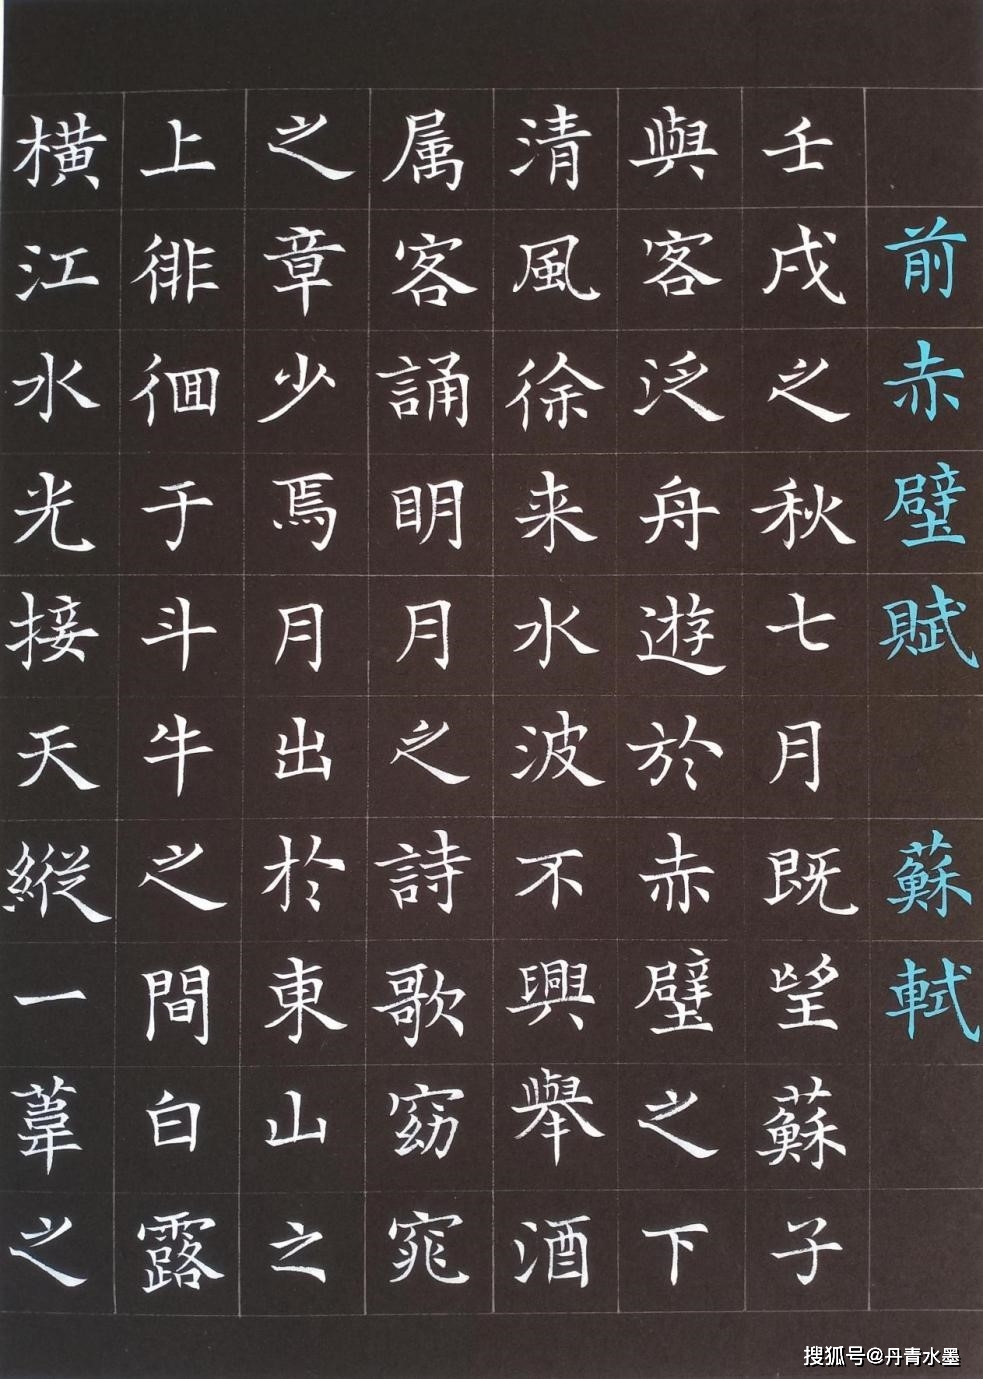 前赤壁賦 蘇軾
壬戌之秋七月既望蘇子
與客泛舟遊於赤壁之下
清風徐来水波不興舉酒
属客誦明月之詩歌窈窕
之章少焉月出於東山之
上徘徊于斗牛之間白露
横江水光接天縱一葦之
搜狐号@丹青水墨